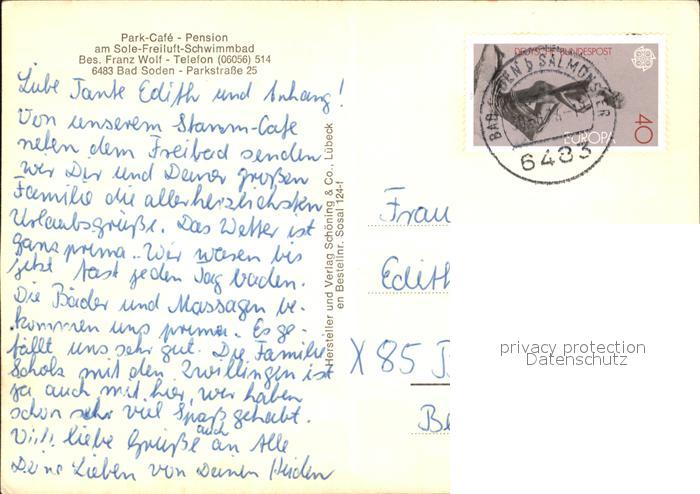 Park-Café - Pension
am Sole-Freiluft-Schwimmbad
Bes. Franz Wolf - Telefon (06056) 514
6483 Bad Soden - Parkstraße 25
Liebe Tante Edith und Anhang!
Von unserem Stamm-Café
neben dem Freibad senden
wir Dir und Deiner großen
Familie die allerherzlichsten
Urlaubsgrüße. Das Wetter ist
ganz prima. Wir waren bis
jetzt fast jeden Tag baden.
Die Bäder und Massagen be-
kommen uns prima. Es ge-
fällt uns sehr gut. Die Familie
Scholz mit den Zwillingen ist
ja auch mit hier, wir haben
schon sehr viel Spaß gehabt.
Viele liebe Grüße auch an Alle
Deine Lieben von Deinen
Hersteller und Verlag Schöning & Co., Lübeck
en Bestellnr. Sosal 124-f
DEUTSCHE BUNDESPOST
EUROPA
40
BAD SODEN b SALMÜNSTER
6483
Frau
Edith
X 85
Be
privacy protection
Datenschutz